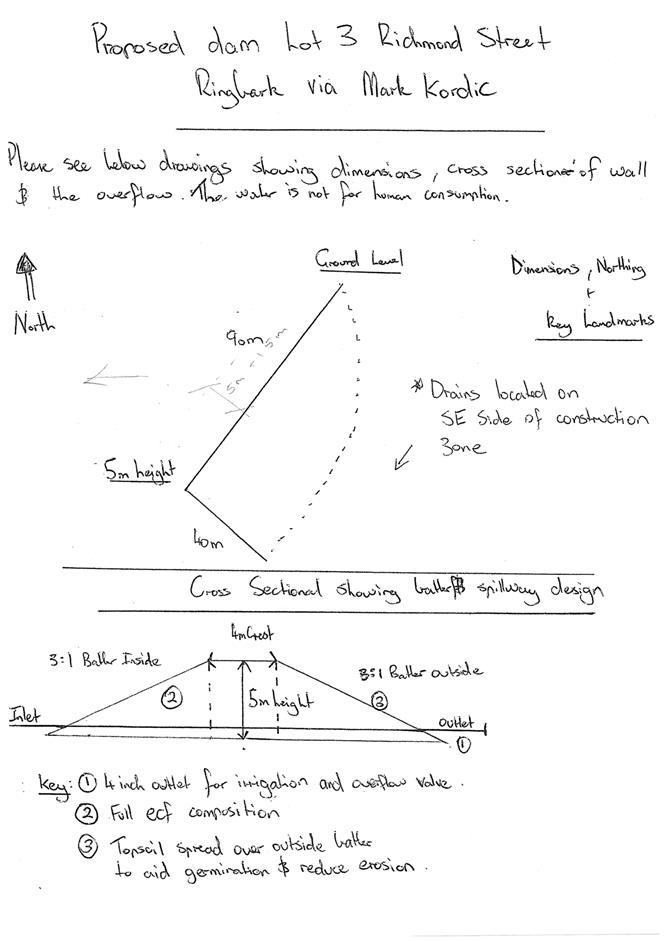 Proposed dam Lot 3 Richmond Street
Ringbark via Mark Kordic
Please see below drawings showing dimensions, cross section of wall
& the overflow. The water is not for human consumption.
Ground Level
Dimensions, Northing
+
Key Landmarks
North
90m
5m
5m
* Drains located on
SE Side of construction
Zone
5m height
40m
Cross Sectional showing batter & spillway design
4m Crest
3:1 Batter Inside
3:1 Batter outside
2
5m height
3
Inlet
outlet
1
Key: 1 4 inch outlet for irrigation and overflow valve.
2 Full ecf composition
3 Topsoil spread over outside batter
to aid germination & reduce erosion.